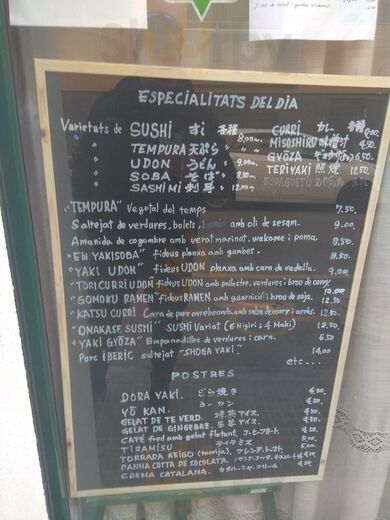 ESPECIALITATS DEL DIA
Varietats de SUSHI すし 各種 CURRI カレー 各種 9.00
" TEMPURA 天ぷら " 8.00 MISOSHIRU 味噌汁 4.50
" UDON うどん " 9.00 GYŌZA ギョウザ 6.50
" SOBA そば " TERIYAKI 照焼
" SASHIMI 刺身 " 12.00
"TEMPURA" Vegetal del temps 7.50
Saltejat de verdures, bolets, bambú amb oli de sesam. 9.00
Amanida de cogombre amb verat marinat, wakame i poma. 8.50
"Ebi YAKISOBA" fideus planxa amb gambes. 8.50
"YAKI UDON" fideus UDON planxa amb carn de vedella. 9.00
"TORI CURRI UDON" fideus UDON amb pollastre, verdures i brou de curry. 10.00
"GOMOKU RAMEN" fideus RAMEN amb guarnició i brou de soja. 12.50
"KATSU CURRI" Carn de porc arrebossada amb salsa de curry i arròs. 12.50
"OMAKASE SUSHI" SUSHI Variat (6 Nigiri i 4 Maki) 12.50
"YAKI GYŌZA" Empanadilles de verdures i carn. 6.50
Porc IBÈRIC saltejat "SHOGA YAKI" 14.00
etc...
POSTRES
DORA YAKI. どら焼き 4.50
YŌ KAN. ヨーカン 4.50
GELAT DE TE VERD. 抹茶アイス. 4.50
GELAT DE GINGEBRE. 生姜アイス. 4.50
CAFÈ fred amb gelat flotant. コーヒーフロート 4.50
TIRAMISU ティラミス 5.00
TORRADA KEIGO (torrija). フレンチトースト 5.00
PANNA COTTA DE XOCOLATA. 4.50
CREMA CATALANA. カタルーニャ クリーム 4.50